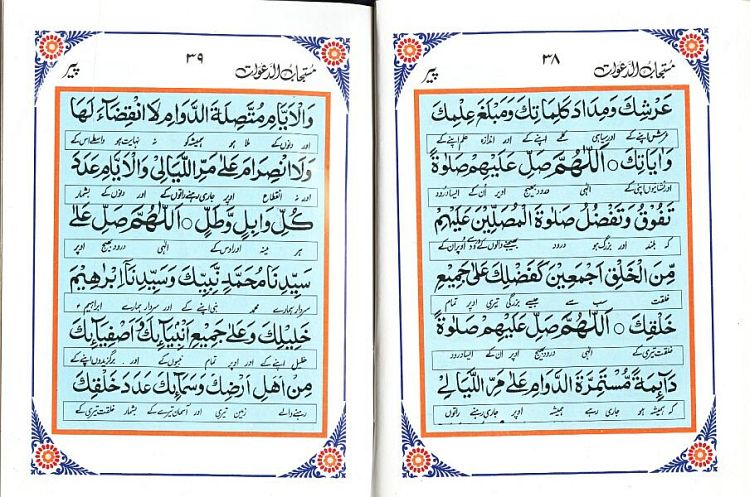 مستجاب الدعوات ۳۸ پیر
عَرْشِكَ وَمِدَادَ كَلِمَاتِكَ وَمَبْلَغَ عِلْمِكَ
عرش اپنے کے اور سیاہی کلمے اپنے کے اور اندازہ علم اپنے کے
وَاٰيَاتِكَ ○ اَللّٰهُمَّ صَلِّ عَلَيْهِمْ صَلٰوةً
اور نشانیوں اپنی کے الٰہی درود بھیج اوپر اُن کے ایسا درود
تَفُوْقُ وَتَفْضُلُ صَلٰوةَ الْمُصَلِّيْنَ عَلَيْهِمْ
کہ بلند اور بزرگ ہو درود بھیجنے والوں کے اوپر ان کے
مِّنَ الْخَلْقِ اَجْمَعِيْنَ كَفَضْلِكَ عَلٰى جَمِيْعِ
خلقت سب سے جیسے بزرگی تیری اوپر تمام
خَلْقِكَ ○ اَللّٰهُمَّ صَلِّ عَلَيْهِمْ صَلٰوةً
خلقت تیری کے الٰہی درود بھیج اوپر اُن کے ایسا درود
دَآئِمَةً مُّسْتَمِرَّةَ الدَّوَامِ عَلٰى مَرِّ اللَّيَالِىْ
کہ ہمیشہ ہو جاری رہے ہمیشہ اوپر جاری رہنے راتوں
مستجاب الدعوات ۳۹ پیر
وَالْاَيَّامِ مُتَّصِلَةَ الدَّوَامِ لَا انْقِضَآءَ لَهَا
اور دنوں کے ملا ہو ہمیشہ کو نہ نہایت ہو واسطے اس کے
وَلَا انْصِرَامَ عَلٰى مَرِّ اللَّيَالِىْ وَالْاَيَّامِ عَدَدَ
اور نہ انقطاع اوپر جاری رہنے راتوں کے اور دنوں کے بشمار
كُلِّ وَابِلٍ وَّطَلٍّ ○ اَللّٰهُمَّ صَلِّ عَلٰى
ہر مینہ اور اوس کے الٰہی درود بھیج اوپر
سَيِّدِنَا مُحَمَّدٍ نَبِيِّكَ وَسَيِّدِنَآ اِبْرٰهِيْمَ
سردار ہمارے محمد نبی اپنے کے اور سردار ہمارے ابراہیم
خَلِيْلِكَ وَعَلٰى جَمِيْعِ اَنْبِيَآئِكَ وَاَصْفِيَآئِكَ
خلیل اپنے کے اور اوپر تمام نبیوں کے اور برگزیدوں اپنے کے
مِنْ اَهْلِ اَرْضِكَ وَسَمَآئِكَ عَدَدَ خَلْقِكَ
رہنے والے زمین تیری اور آسمان تیرے کے بشمار خلقت تیری کے